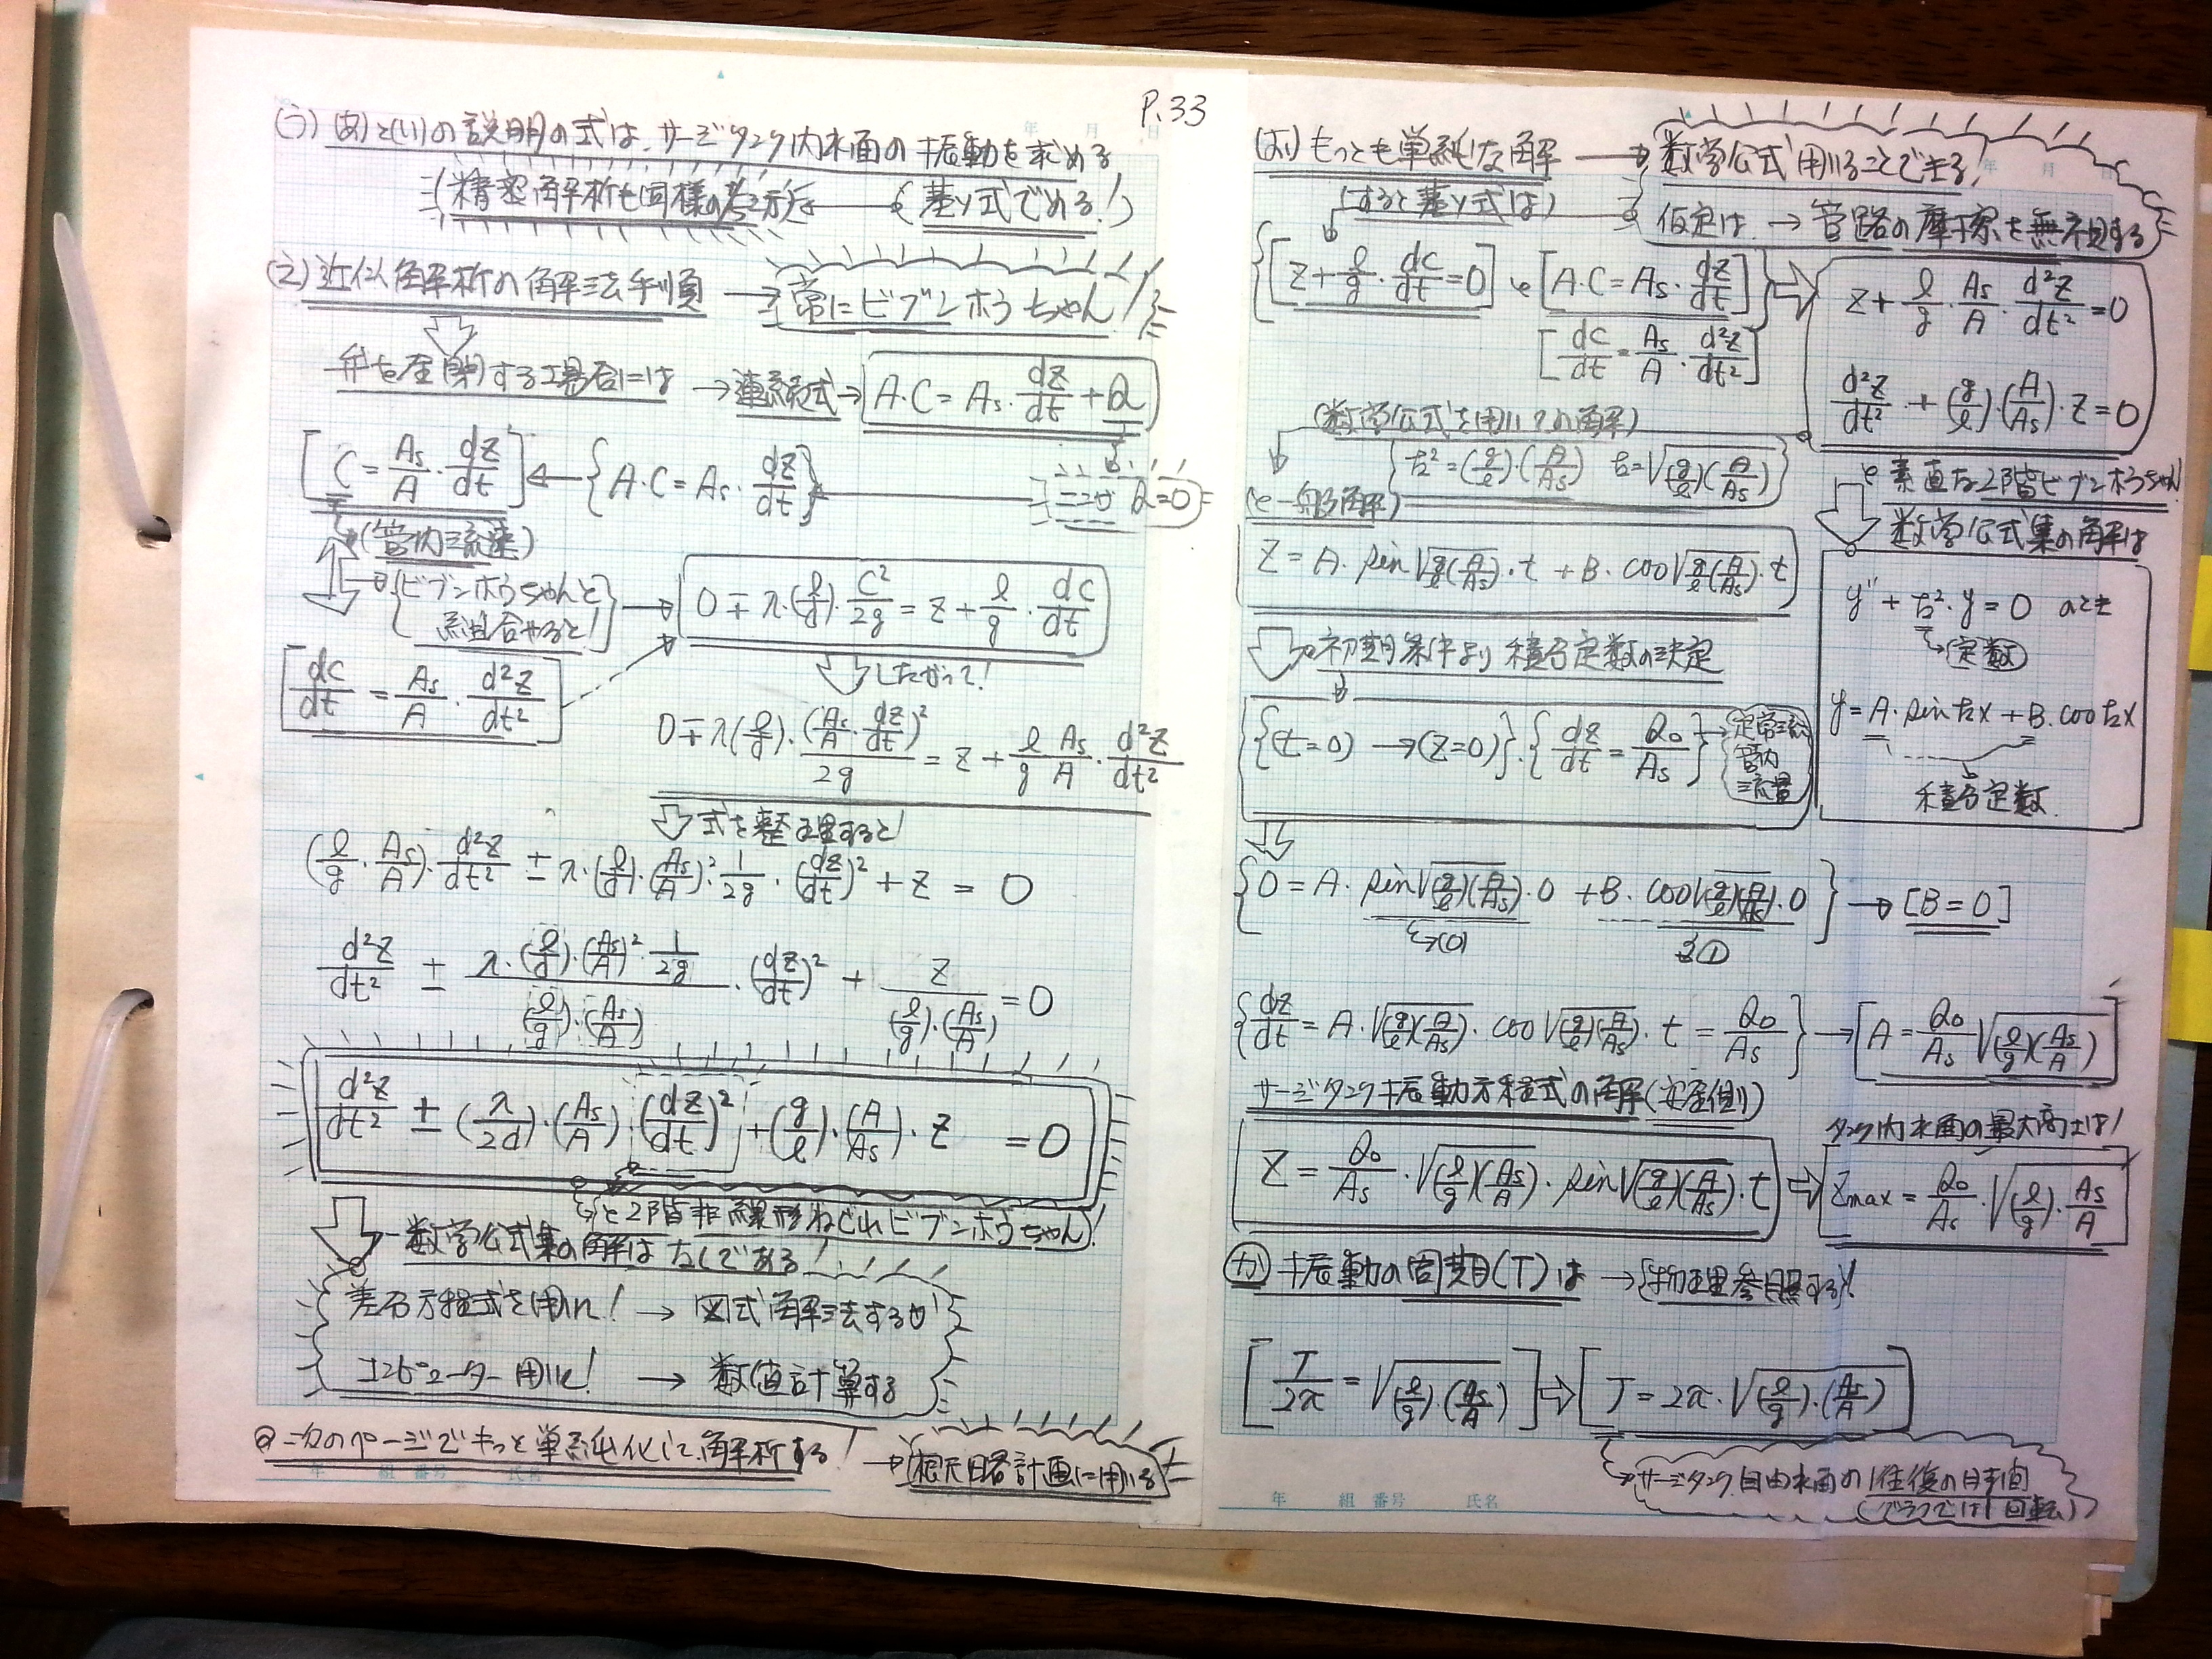 P.33
(う) (あ)と(い)の説明の式は、サージタンク内水面の振動を求める
基本式である!
(え) 近似解析の解法手順 → 常にビブンホウちゃん!
弁を全閉する場合には → 連続式 → A・C = As・dz/dt + Q
Q=0
{A・C = As・dz/dt}
[C = As/A・dz/dt]
(管内流速)
ビブンホウちゃんと
組合せると!
0 ∓ λ・(l/d)・C²/2g = z + l/g・dc/dt
dc/dt = As/A・d²z/dt²
したがって!
0 ∓ λ(l/d)・(As/A・dz/dt)²/2g = z + l/g・As/A・d²z/dt²
式を整理すると!
(l/g・As/A)・d²z/dt² ± λ・(l/d)・(As/A)²・1/2g・(dz/dt)² + z = 0
d²z/dt² ± λ・(l/d)・(As/A)²・1/2g / (l/g)・(As/A)・(dz/dt)² + z / (l/g)・(As/A) = 0
d²z/dt² ± (λ/2d)・(As/A)・(dz/dt)² + (g/l)・(A/As)・z = 0
と2階非線形ねじれビブンホウちゃん!
数学公式集の解はなしである!
差分方程式を用い! → 図式解法する
コンピューター用い! → 数値計算する
次のページでもっと単純化して解析する! → 概略計画に用いる
(お) もっとも単純な解 → 数学公式用いることできる!
(すると基本式は)
仮定は → 管路の摩擦を無視する
{[z + l/g・dc/dt = 0] と [A・C = As・dz/dt]}
[dc/dt = As/A・d²z/dt²]
z + l/g・As/A・d²z/dt² = 0
d²z/dt² + (g/l)・(A/As)・z = 0
(数学公式を用いての解)
{k² = (g/l)(A/As) k = √(g/l)(A/As)}
素直な2階ビブンホウちゃん!
数学公式集の解は
y″ + k²・y = 0 のとき
定数
y = A・sin kx + B・cos kx
積分定数
(と一般解)
z = A・sin√g/l(A/As)・t + B・cos√g/l(A/As)・t
初期条件より積分定数の決定
{(t=0) → (z=0)}・{dz/dt = Q₀/As} → 定常流
管内
流量
{0 = A・sin√(g/l)(A/As)・0 + B・cos√(g/l)(A/As)・0} → [B = 0]
(0)
①
{dz/dt = A・√(g/l)(A/As)・cos√(g/l)(A/As)・t = Q₀/As} → [A = Q₀/As √(l/g)(As/A)]
サージタンク振動方程式の解(安全側)
z = Q₀/As・√(l/g)(As/A)・sin√(g/l)(A/As)・t
タンク内水面の最大高は!
Zmax = Q₀/As・√(l/g)・As/A
(か) 振動の周期(T)は → {物理参照する}!
[T/2π = √(l/g)・(As/A)] ⇒ [T = 2π・√(l/g)・(As/A)]
サージタンク自由水面の1往復の時間
(グラフでは1回転)
年 組 番号 氏名